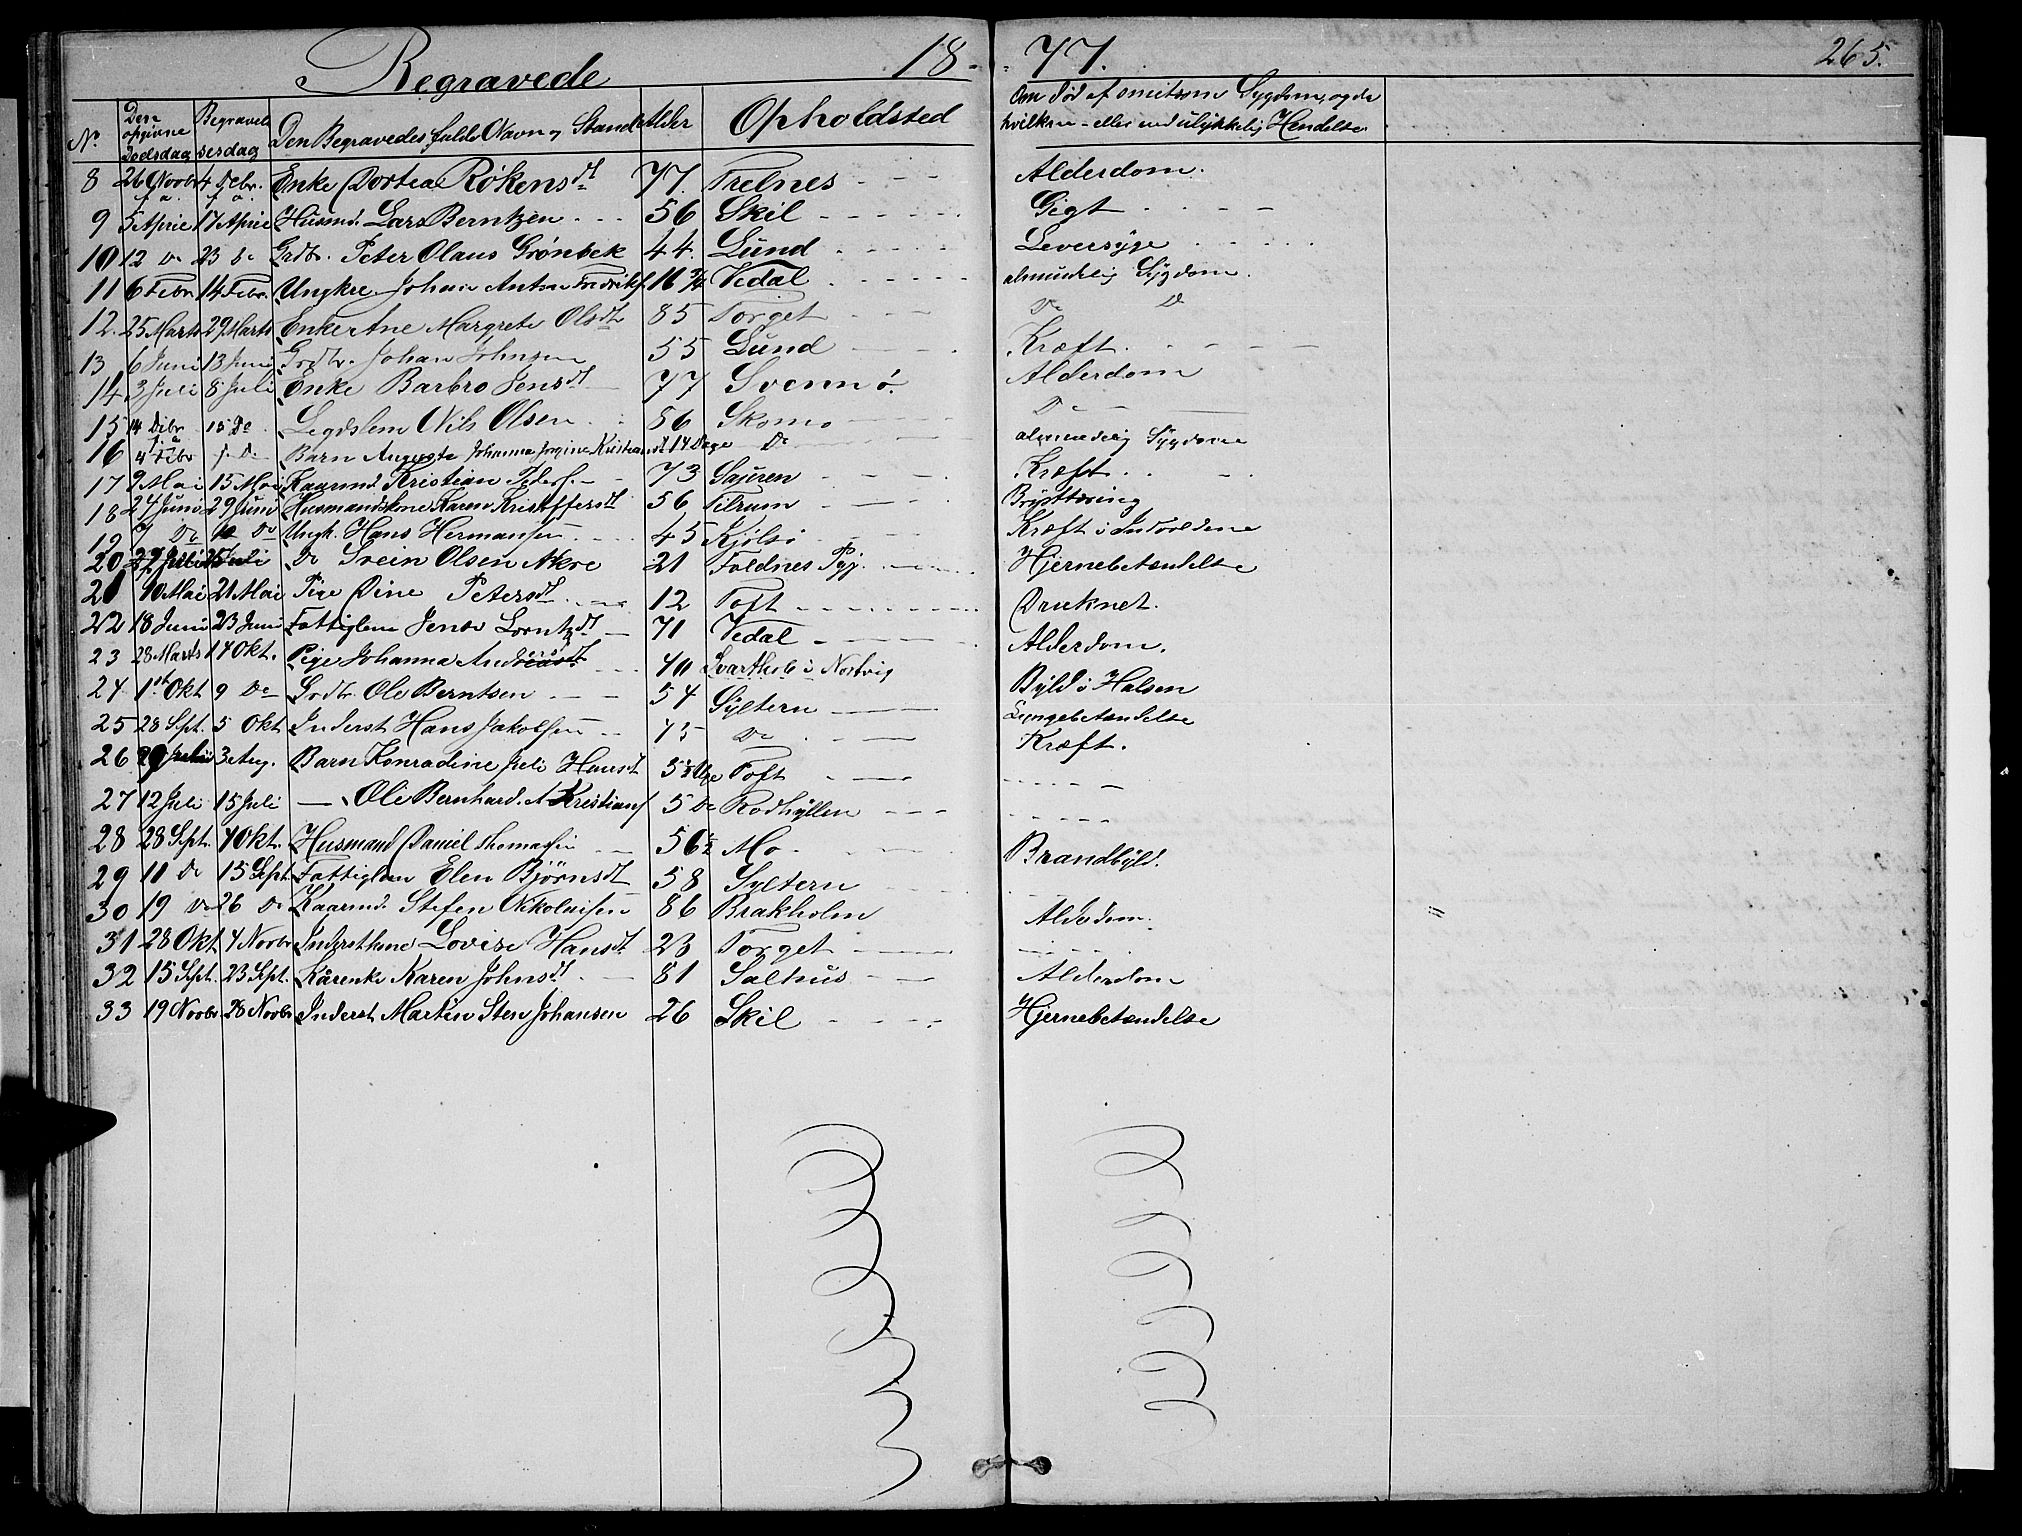 Begravede 18-77. 265.
No. Den opgivne Dødsdag Begravelsesdag Den Begravedes fulde Navn og Stand Alder Opholdsted Om død af smitsom Sygdom, og da hvilken - eller ved ulykkelig Hendelse
8 26 Novbr f.a. 4 Febr. f.a. Enke Dortea Røkensdt 77. Trelnes Alderdom.
9 5 April 17 April Husmd. Lars Berntzen 56 Skil Gigt
10 12 Do 23 Do Grdbr. Peter Olaus Grønbek 44. Lund Leversyge
11 6 Febr 14 Febr. Ungkrl. Johan Anton Fredriks. 16 Vedal almindelig Sygdom.
12. 25 Marts 29 Marts Enke Ane Margrete Olsdt 85 Torget Do Do
13 6 Juni 13 Juni Grdbr. Johan Johnsen 55 Lund Kræft.
14 3 Juli 8 Juli Enke Barbro Jensdt 77 Svennø. Alderdom
15 14 Dcbr f.a. 15 Do Legdslem Nils Olsen 86 Skomo Do
16 4 Febr f. Do Barn Auguste Johanna Jorgine Kristiansdt 14 Dage Do almindelig Sygdom
17 9 Mai 15 Mai Kaarmd. Kristian Peders. 73 Sauren Kræft.
18 24 Juni 29 Juni Husmandskone Karen Kristoffersdt 56 Tilrum Brysttæring
19 7 Do 10 Do Ungk. Hans Hermansen 45 Kjølsø Kræft i Indvoldene
20 22 Juli 25 Juli Do Svein Olsen Akre 21 Foldnes Hjernebetændelse
21 10 Mai 21 Mai Pige Dine Petersdt 12 Toft Druknet.
22 18 Juni 23 Juni Fattiglem Jense Lorntzdt 71 Vedal Alderdom.
23 28 Marts 14 Okt. Pige Johanna Andreasdt 40 Svarthule i Nordvig
24 1ste Okt 9 Do Grdbr Ole Berntsen 54 Syltern Byld i Halsen
25 28 Sept. 5 Okt Inderst Hans Jakobsen 75 Do Lungebetændelse
26 29 Juli 3 Aug. Barn Konradine Juli Hansdt 5 Uge Toft Kræft.
27 12 Juli 15 Juli — Ole Bernhard A Kristians 5 Do Rodhyllen
28 28 Sept. 4 Okt. Husmand Daniel Thomassen 56½ Mo
29 11 Do 15 Sept Fattiglem Elen Bjørnsdt 58 Syltern Brandbyld.
30 19 Do 26 Do Kaarmd. Stefen Nikolaisen 86 Brakholm Alderdom
31 28 Okt. 4 Novbr Inderstkone Lovise Hansdt 23 Torget
32 15 Sept. 23 Sept. Kårenke Karen Johnsdt 81 Salhus Alderdom
33 19 Novbr 26 Novbr Inderst Martin Sten Johansen 26 Skil Hjernebetændelse